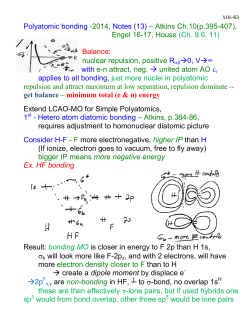 XIII-63
Polyatomic bonding -2014, Notes (13) – Atkins Ch.10(p.395-407),
Engel 16-17, House (Ch. 9.6, 11)
Balance:
nuclear repulsion, positive Rαβ→0, V→∞
with e-n attract, neg. → united atom AO ε,
applies to all bonding, just more nuclei in polyatomic
repulsion and attract maximum at low separation, repulsion dominate --
get balance – minimum total (e & n) energy
Extend LCAO-MO for Simple Polyatomics,
1st - Hetero atom diatomic bonding – Atkins, p.384-86,
requires adjustment to homonuclear diatomic picture
Consider H-F - F more electronegative, higher IP than H
(If ionize, electron goes to vacuum, free to fly away)
bigger IP means more negative energy
Ex. HF bonding
6*
1s
H
2p
F
2s
Result: bonding MO is closer in energy to F 2p than H 1s,
σb will look more like F-2pz, and with 2 electrons, will have
more electron density closer to F than to H
→ create a dipole moment by displace e-
→2pFx,y are non-bonding in HF, ┴ to σ-bond, no overlap 1sH
these are then effectively π-lone pairs, but if used hybrids one
sp3 would from bond overlap, other three sp3 would be lone pairs